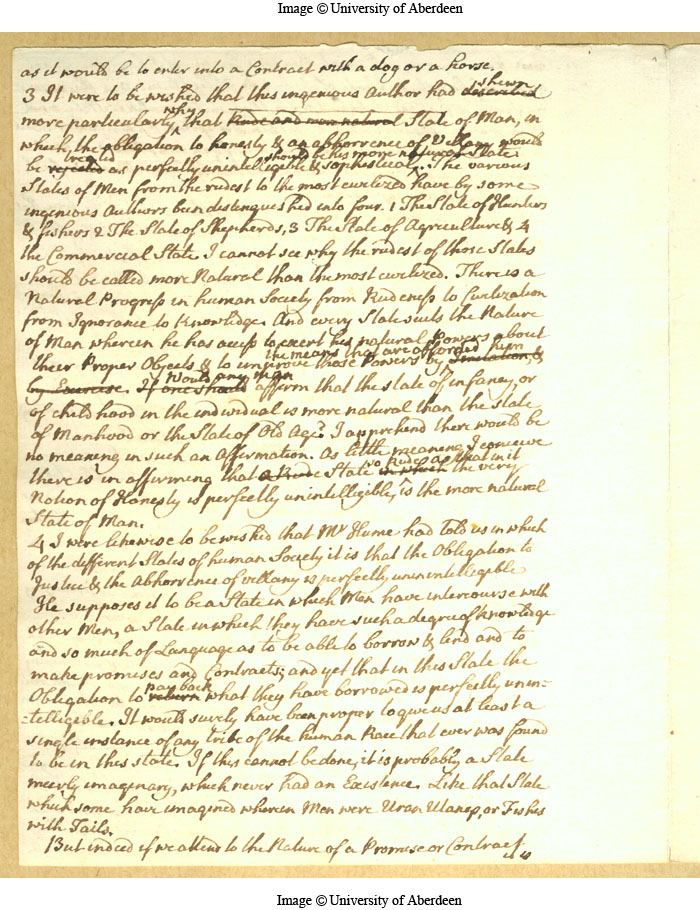 Image © University of Aberdeen
as it would be to enter into a Contract with a dog or a horse.
3 It were to be wished that this ingenious Author had discribed shewn
more particularly why that Rude and more natural State of Man, in
which, the obligation to honesty & an abhorrence of Villany would
be rejected treated as perfectly unintelligible & sophistical, should be his more natural State. The various
States of Men from the rudest to the most civilized have by some
ingenious Authors been distinguished into four. 1 The State of Hunters
& fishers 2 The State of Shepherds, 3 The State of Agriculture & 4
the Commercial State. I cannot see why the rudest of those States
should be called more Natural than the most civilized. There is a
Natural Progress in human Society from Rudeness to Civilization
from Ignorance to Knowledge. And every State suits the Nature
of Man wherein he has access to exert his natural Powers about
their Proper Objects & to improve those Powers by the means that are afforded him
by Exercise. If one should Would any man affirm that the state of infancy, or
of childhood in the individual is more natural than the state
of Manhood or the State of Old Age? I apprehend there would be
no meaning in such an Affirmation. As little meaning I conceive
there is in affirming that a Rude State so Rude as that in it in which the very
Notion of Honesty is perfectly unintelligible, is the more natural
State of Man.
4 I were likewise to be wished that Mr Hume had told us in which
of the different States of human Society it is that the Obligation to
Justice & the Abhorrence of villany is perfectly unintelligible
He supposes it to be a State in which Men have intercourse with
other Men, a State in which they have such a degree of knowledge
and so much of Language as to be able to borrow & lend and to
make promises and Contracts; and yet that in this State the
Obligation to return pay back what they have borrowed is perfectly unin=
=telligible. It would surely have been proper to give us at least a
single instance of any tribe of the human Race that ever was found
to be in this state. If this cannot be done, it is probably a State
meerly imaginary, which never had an Existence. Like that State
which some have imagined wherein Men were Uran Utangs, or Fishes
with Tails.
But indeed if we attend to the Nature of a Promise or Contract
it is
Image © University of Aberdeen